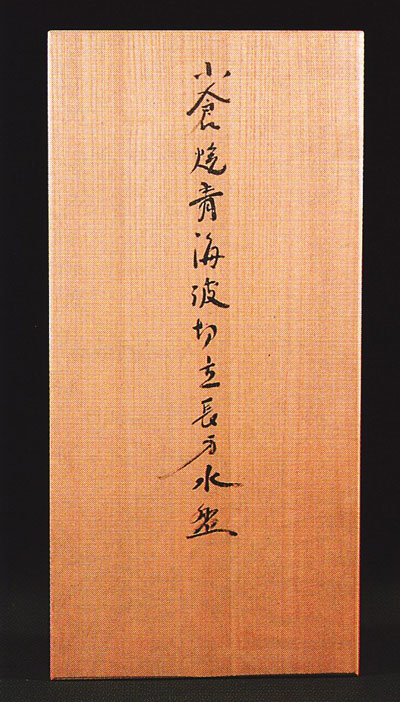 小倉焼青海波切立長方水盤